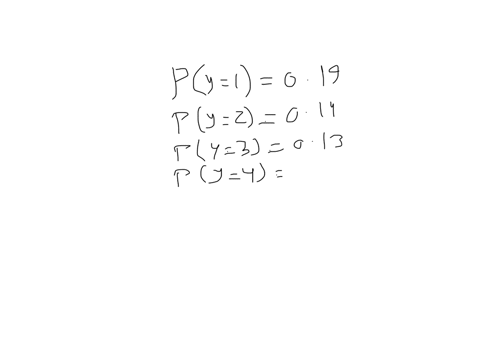 P(y=1) = 0.19
P(y=2) = 0.14
P(y=3) = 0.13
P(y=4) =